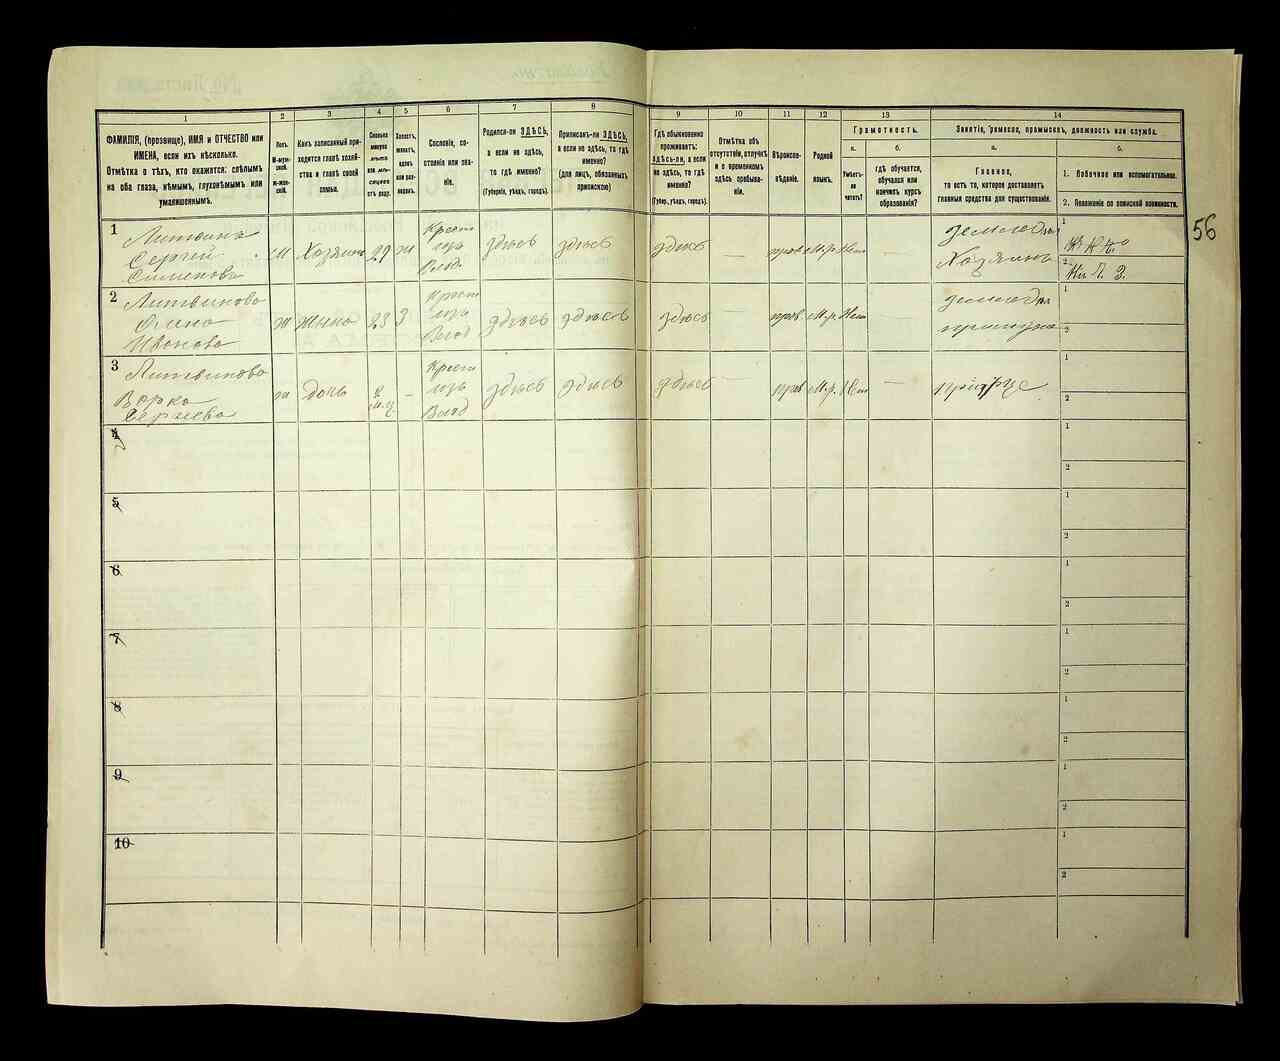 1
2
3
4
5
6
7
8
ФАМИЛІЯ, (прозвище), ИМЯ и ОТЧЕСТВО или
ИМЕНА, если ихъ нѣсколько.
Отмѣтка о тѣхъ, кто окажется: слѣпымъ
на оба глаза, нѣмымъ, глухонѣмымъ или
умалишеннымъ.
Полъ.
М-муж-
ской.
Ж-жен-
скій.
Какъ записанный при-
ходится главѣ хозяй-
ства и главѣ своей
семьи.
Сколько
минуло
лѣтъ
или мѣ-
сяцевъ
отъ роду.
Холостъ,
женатъ,
вдовъ
или раз-
веденъ.
Сословіе, со-
стояніе или зва-
ніе.
Родился-ли ЗДѢСЬ,
а если не здѣсь,
то гдѣ именно?
(Губернія, уѣздъ, городъ).
Приписанъ-ли ЗДѢСЬ,
а если не здѣсь, то гдѣ
именно?
(для лицъ, обязанныхъ
припискою)
1
Литвинъ
Сергей
Сименовъ
М Хозяинъ 29 ж Крест
изъ
Влад. здѣсь здѣсь
2
Литвинова
Иванова
ж жена 23 З Крест
изъ
Влад здѣсь здѣсь
3
Литвинова
Варка
Сергиева
ж дочь 2 — Крест
изъ
Влад здѣсь здѣсь
4
5
6
7
8
9
10
9
10
11
12
13
14
Гдѣ обыкновенно
проживаетъ:
ЗДѢСЬ-ли, а если
не здѣсь, то гдѣ
именно?
(Губер., уѣздъ, городъ).
Отмѣтка объ
отсутствіи, отлучкѣ
и о временномъ
здѣсь пребыва-
ніи.
Вѣроиспо-
вѣданіе.
Родной
языкъ.
Грамотность.
а.
б.
Умѣетъ-
ли
читать?
гдѣ обучается,
обучался или
кончилъ курсъ
образованія?
Занятіе, ремесло, промыселъ, должность или служба.
а.
б.
Главное,
то есть то, которое доставляетъ
главныя средства для существованія.
1. Побочное или вспомогательное.
2. Положеніе по воинской повинности.
56
здѣсь — прав М.р. Нет — земледел
Хозяинъ
1
2
здѣсь — прав. М.р. Нет земледел
1
2
здѣсь — прав М.р. Нет — при отце
1
2
1
2
1
2
1
2
1
2
1
2
1
2
1
2